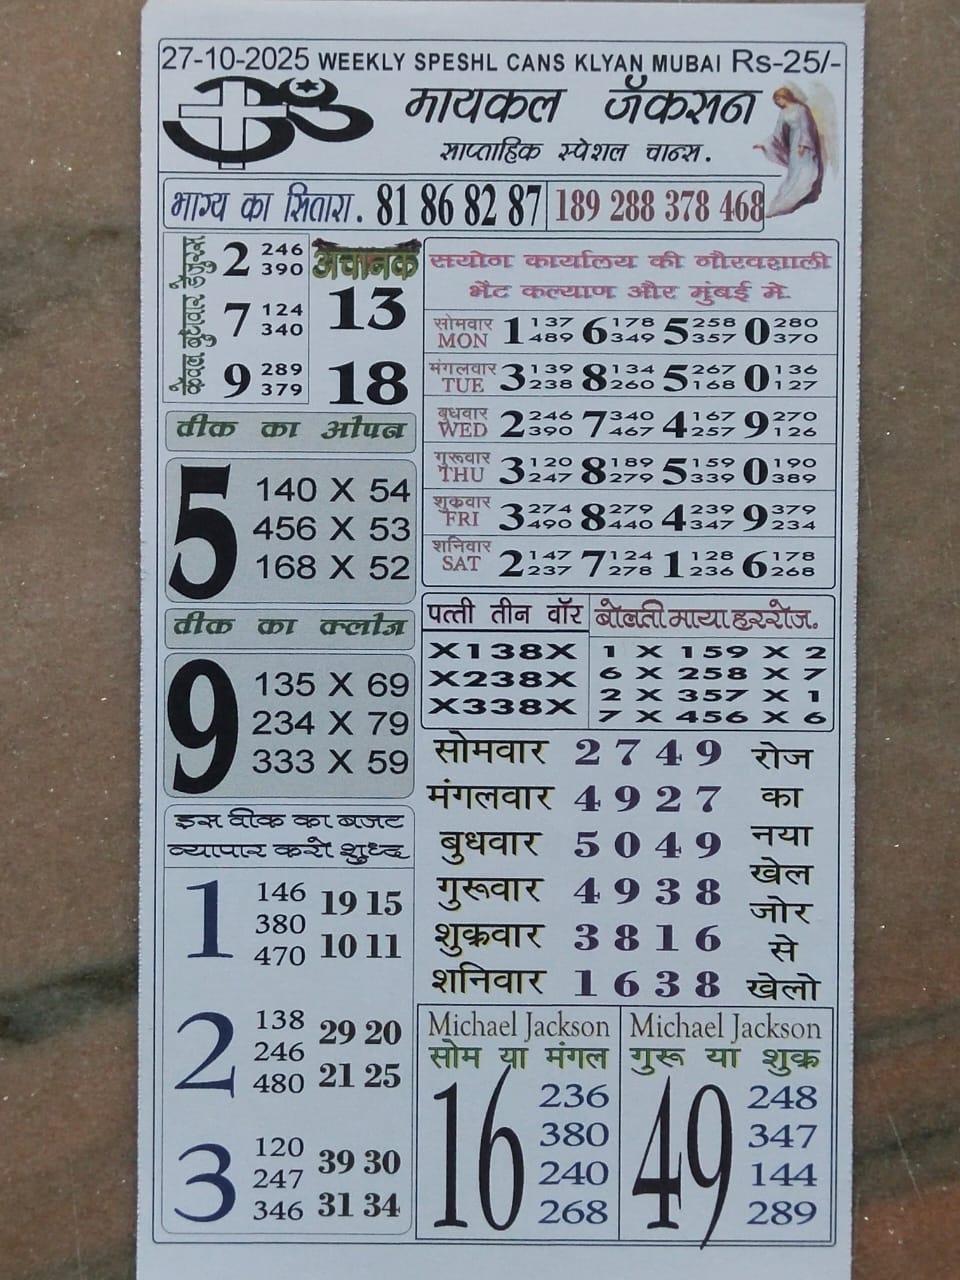 27-10-2025 WEEKLY SPESHL CANS KLYAN MUBAI Rs-25/-
मायकल जॅकसन
साप्ताहिक स्पेशल चान्स.
भाग्य का सितारा. 81 86 82 87 189 288 378 468
केवल बुधवार
2 246 390
7 124 340
9 289 379
अचानक
13
18
सयोग कार्यालय की गौरवशाली
भेंट कल्याण और मुंबई मे.
सोमवार MON 1 137 489 6 178 349 5 258 357 0 280 370
मंगलवार TUE 3 139 238 8 134 260 5 267 168 0 136 127
बुधवार WED 2 246 390 7 340 467 4 167 257 9 270 126
गुरूवार THU 3 120 247 8 189 279 5 159 339 0 190 389
शुक्रवार FRI 3 274 490 8 279 440 4 239 347 9 379 234
शनिवार SAT 2 147 237 7 124 278 1 128 236 6 178 268
वीक का ओपन
5
140 X 54
456 X 53
168 X 52
वीक का क्लोज
9
135 X 69
234 X 79
333 X 59
पत्ती तीन वॉर
X138X
X238X
X338X
बोलती माया हररोज.
1 X 159 X 2
6 X 258 X 7
2 X 357 X 1
7 X 456 X 6
सोमवार 2 7 4 9
मंगलवार 4 9 2 7
बुधवार 5 0 4 9
गुरूवार 4 9 3 8
शुक्रवार 3 8 1 6
शनिवार 1 6 3 8
रोज
का
नया
खेल
जोर
से
खेलो
इस वीक का बजट
व्यापार करो शुध्द
1
146 19 15
380
470 10 11
2
138 29 20
246
480 21 25
3
120 39 30
247
346 31 34
Michael Jackson
सोम या मंगल
16
236
380
240
268
Michael Jackson
गुरू या शुक्र
49
248
347
144
289